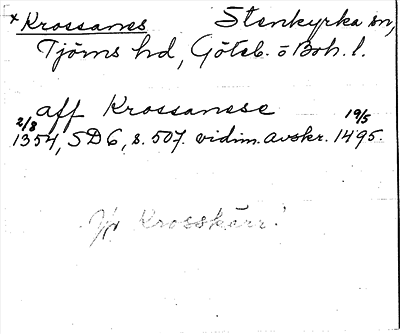 *Krossanes Stenkyrka sn,
Tjörns hd, Göteb. o Boh. l.
aff Krossanese
2/8 1354, SD 6, s. 507. vidim. avskr. 19/5 1495.
Jfr Krosskärr!